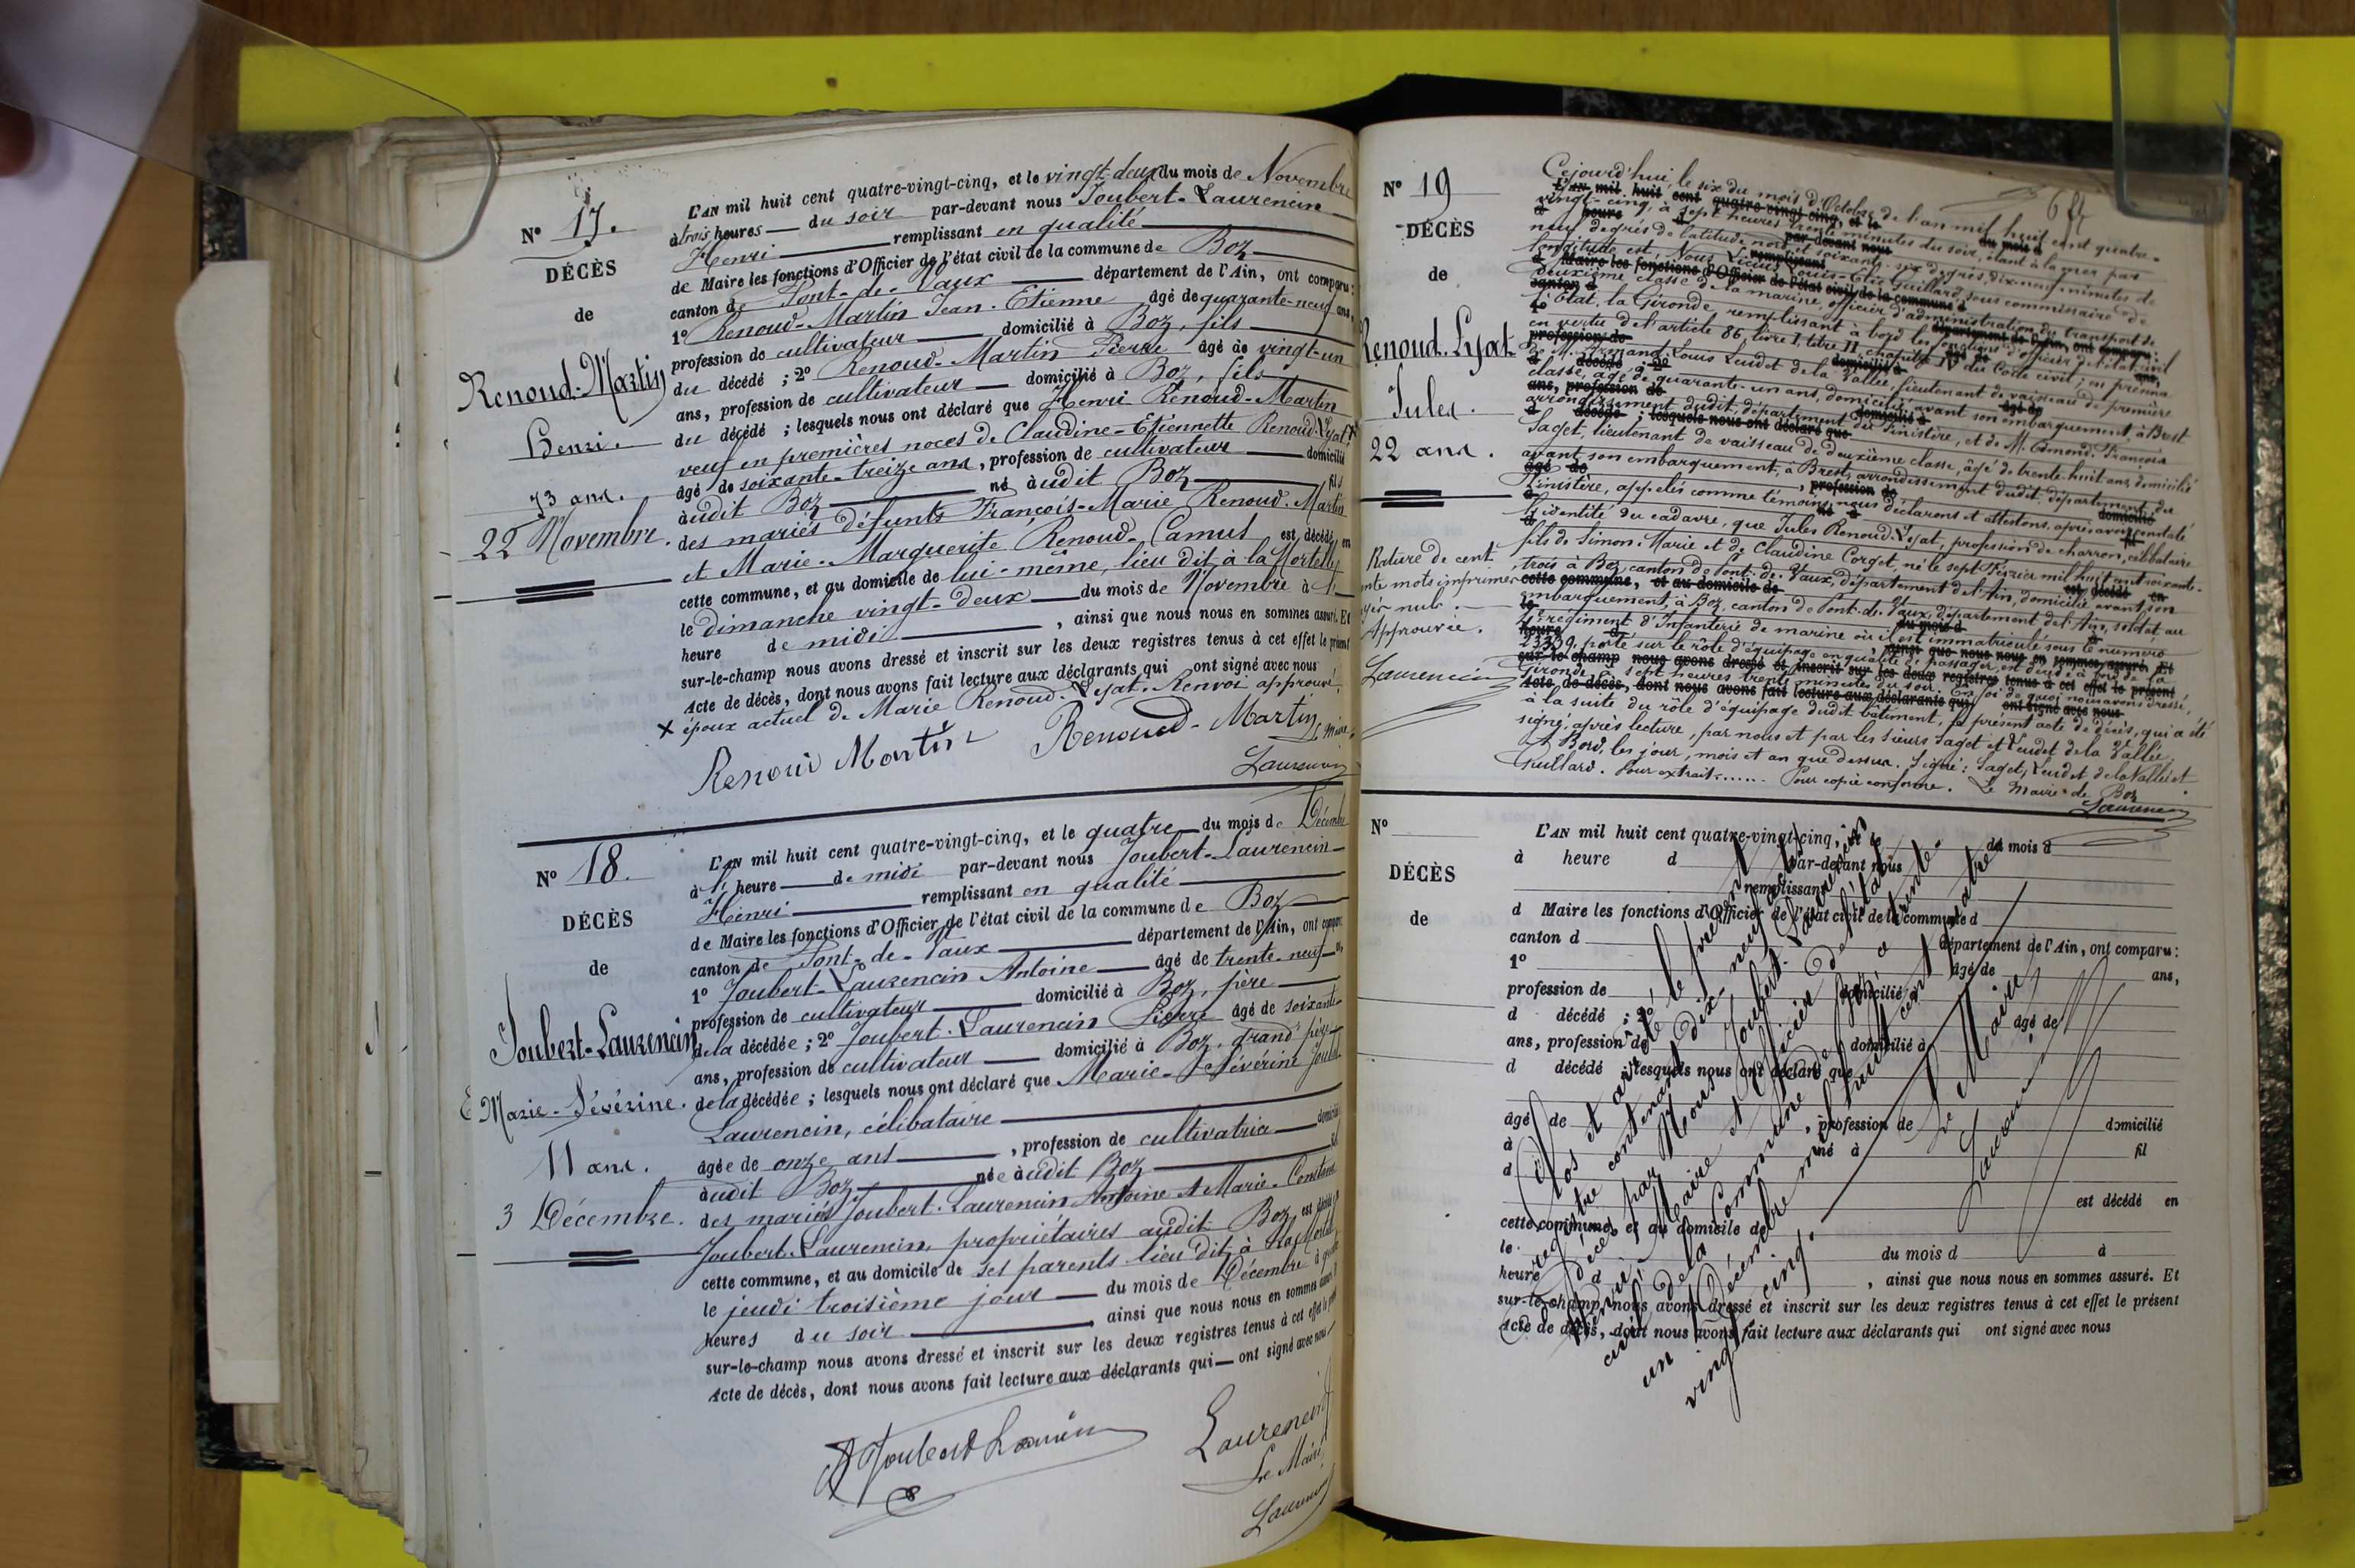 N° 17.
DÉCÈS
de
Renoud-Martin
Henri.
73 ans.
22 Novembre.
L'AN mil huit cent quatre-vingt-cinq, et le vingt-deux du mois de Novembre
à trois heures du soir par-devant nous Joubert-Laurencin
Henri remplissant en qualité
de Maire les fonctions d'Officier de l'état civil de la commune de Boz
canton de Pont-de-Vaux département de l'Ain, ont comparu :
1° Renoud-Martin Jean-Etienne âgé de quarante-neuf ans,
profession de cultivateur domicilié à Boz, fils
du décédé ; 2° Renoud-Martin Pierre âgé de vingt-un
ans, profession de cultivateur domicilié à Boz, fils
du décédé ; lesquels nous ont déclaré que Henri Renoud-Martin
veuf en premières noces de Claudine-Etiennette Renoud-Lyat X
âgé de soixante-treize ans, profession de cultivateur domicilié
audit Boz né audit Boz fils
des mariés défunts François-Marie Renoud-Martin
et Marie-Marguerite Renoud-Camus est décédé en
cette commune, et au domicile de lui-même, lieu dit, à la
le dimanche vingt-deux du mois de Novembre à 1
heure de midi , ainsi que nous nous en sommes assuré. Et
sur-le-champ nous avons dressé et inscrit sur les deux registres tenus à cet effet le présent
Acte de décès, dont nous avons fait lecture aux déclarants qui ont signé avec nous
X époux actuel de Marie Renoud-Lyat. Renvoi approuvé.
Renoud Martin Renoud-Martin Le Maire,
Laurencin
N° 18.
DÉCÈS
de
Joubert-Laurencin
Marie-Sévérine.
11 ans.
3 Décembre.
L'AN mil huit cent quatre-vingt-cinq, et le quatre du mois de Décembre
à 1 heure de midi par-devant nous Joubert-Laurencin
Henri remplissant en qualité
de Maire les fonctions d'Officier de l'état civil de la commune de Boz
canton de Pont-de-Vaux département de l'Ain, ont comparu
1° Joubert-Laurencin Antoine âgé de trente-neuf ans,
profession de cultivateur domicilié à Boz, père
de la décédée ; 2° Joubert-Laurencin Pierre âgé de soixante-
ans, profession de cultivateur domicilié à Boz, grand père
de la décédée ; lesquels nous ont déclaré que Marie-Sévérine Joubert
Laurencin, célibataire
âgée de onze ans , profession de cultivatrice domicilié
audit Boz née audit Boz fil
des mariés Joubert-Laurencin Antoine et Marie-Constance
Joubert-Laurencin, propriétaires audit Boz est décédée en
cette commune, et au domicile de ses parents lieu dit, à
le jeudi troisième jour du mois de Décembre à
heures du soir , ainsi que nous nous en sommes assuré
sur-le-champ nous avons dressé et inscrit sur les deux registres tenus à cet effet le présent
Acte de décès, dont nous avons fait lecture aux déclarants qui ont signé avec nous
Joubert Laurencin
Laurencin
Le Maire,
Laurencin
N° 19
DÉCÈS
de
Renoud-Lyat
Jules.
22 ans.
Rature de cent
mots imprimés
nuls.
Approuvée.
Laurencin
Cejourd'hui, le six du mois d'Octobre de l'an mil huit cent quatre-
vingt-cinq, à sept heures trente minutes du soir, étant à la mer par
neuf degrés de latitude nord et soixante-six degrés dix-neuf minutes de
longitude est, Nous Louis-Elie Guillard, sous commissaire de
deuxième classe de la marine, officier d'administration du transport de
l'Etat, la Gironde remplissant à bord les fonctions d'officier de l'état civil
en vertu de l'article 86, livre 1, titre II chapitre IV du Code civil ; en présence
de M. Armand-Louis Leudet de la Vallée, lieutenant de vaisseau de première
classe, âgé de quarante-un ans, domicilié avant son embarquement, à Brest
arrondissement dudit, département du Finistère, et de M. Edmond-François
Saget, lieutenant de vaisseau de deuxième classe, âgé de trente-huit ans, domicilié
avant son embarquement, à Brest, arrondissement dudit, département du
Finistère, appelés comme témoins, nous déclarons et attestons, après avoir constaté
l'identité du cadavre, que Jules Renoud-Lyat, profession de charron, célibataire
fils de Simon-Marie et de Claudine Corget, né le sept Février mil huit cent soixante-
trois à Boz, canton de Pont-de-Vaux, département de l'Ain, domicilié avant son
embarquement, à Boz, canton de Pont-de-Vaux, département de l'Ain, soldat au
régiment d'Infanterie de marine où il est immatriculé sous le numéro
23339, porté sur le rôle d'équipage en qualité de passager, est décédé à bord de la
Gironde à sept heures trente minutes du soir. En foi de quoi nous avons dressé,
à la suite du rôle d'équipage dudit bâtiment, le présent acte de décès, qui a été
signé, après lecture, par nous et par les sieurs Saget et Leudet de la Vallée.
A Bord, les jour, mois et an que dessus. Signé : Saget, Leudet de la Vallée et
Guillard. Pour extrait...... Pour copie conforme. Le Maire de Boz
Laurencin
N°
DÉCÈS
de
L'AN mil huit cent quatre-vingt-cinq, et le du mois d
à heure d par-devant nous
remplissant
d Maire les fonctions d'Officier de l'état civil de la commune d
canton d département de l'Ain, ont comparu :
1° âgé de ans,
profession de domicilié à
d décédé ; 2° âgé de
ans, profession de domicilié à
d décédé ; lesquels nous ont déclaré que
âgé de , profession de domicilié
à né à fil
d
est décédé en
cette commune, et au domicile de
le du mois d à
heure d , ainsi que nous nous en sommes assuré. Et
sur-le-champ nous avons dressé et inscrit sur les deux registres tenus à cet effet le présent
Acte de décès, dont nous avons fait lecture aux déclarants qui ont signé avec nous
Clos et arrêté le présent
registre contenant dix-neuf actes
de décès par Nous Joubert-Laurencin
Henri Maire et Officier de l'état
civil de la commune de Boz, à trente-
un Décembre mil huit cent quatre
vingt cinq.
Le Maire,
Laurencin